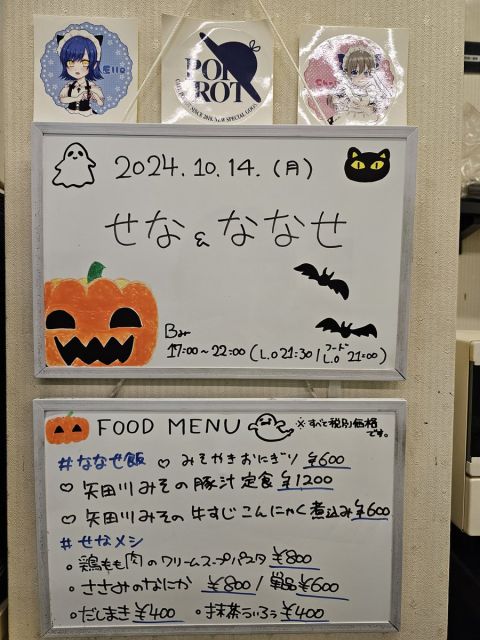 Ello
POI
ROT
2024.10.14.(月)
せな&ななせ
Bar
17:00~22:00 (L.O 21:30 / フード L.O 21:00)
FOOD MENU
※すべて税別価格です。
#ななせ飯 ♡ みそやきおにぎり ¥600
♡ 矢田川みその豚汁定食 ¥1200
♡ 矢田川みその牛すじこんにゃく煮込み ¥600
#せなメシ
・鶏もも肉のクリームスープパスタ ¥800
・ささみのなにか ¥800 / 単品¥600
・だしまき ¥400 ・抹茶ういろう ¥400